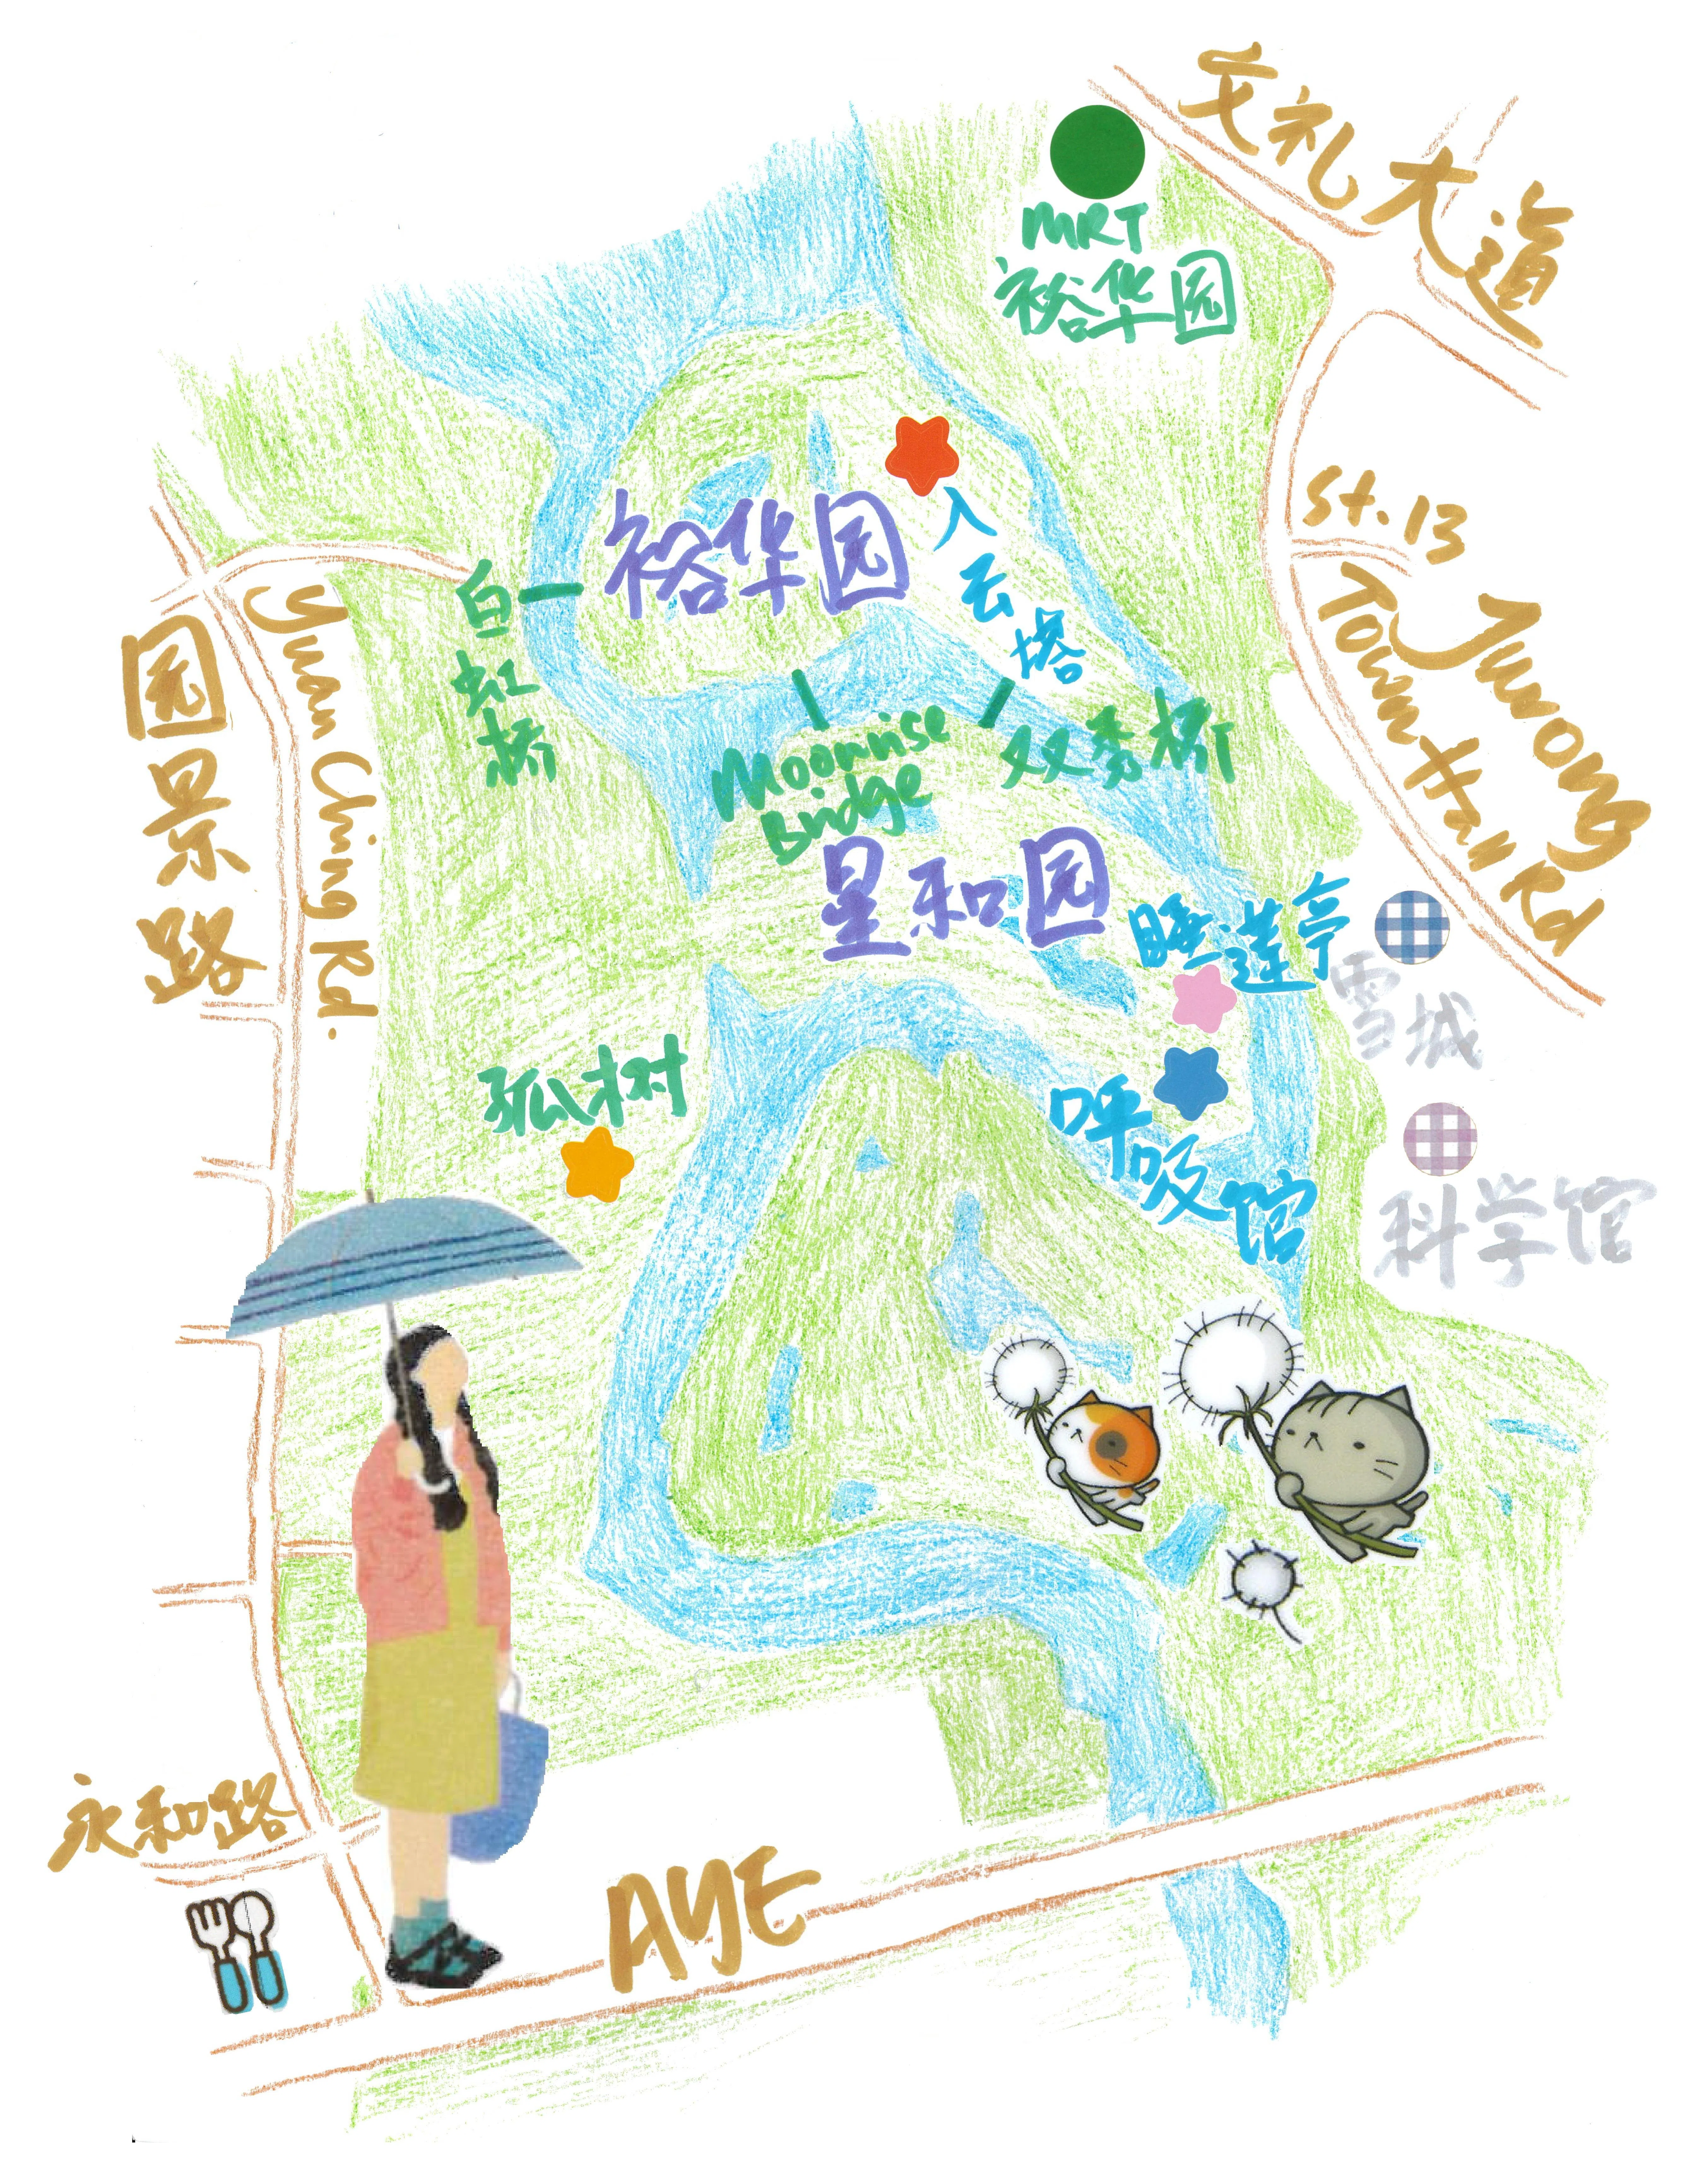 文礼大道
MRT
裕华园
St. 13
Jurong
Town Hall Rd
入云塔
裕华园
白虹桥
Yuan Ching Rd.
园景路
Moonrise
Bridge
双秀桥
星和园
睡莲亭
雪城
孤树
呼吸馆
科学馆
永和路
AYE